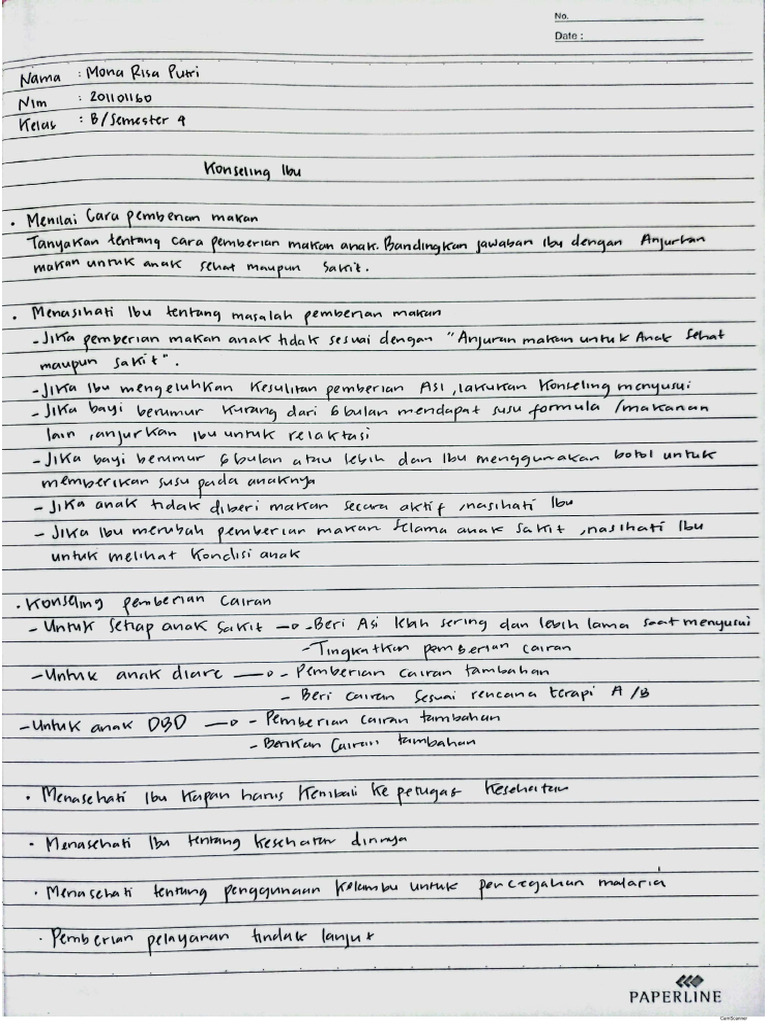 No.
Date :
Nama : Mona Risa Putri
Nim : 201101160
Kelas : B/Semester 4
Konseling Ibu
• Menilai Cara pemberian makan
Tanyakan tentang cara pemberian makan anak. Bandingkan jawaban Ibu dengan Anjurkan
makan untuk anak sehat maupun sakit.
• Menasihati Ibu tentang masalah pemberian makan
- Jika pemberian makan anak tidak sesuai dengan "Anjuran makan untuk Anak Sehat
maupun Sakit".
- Jika Ibu mengeluhkan Kesulitan pemberian Asi, lakukan Konseling menyusui
- Jika bayi berumur kurang dari 6 bulan mendapat susu formula /makanan
lain, anjurkan ibu untuk relaktasi
- Jika bayi berumur 6 bulan atau lebih dan Ibu menggunakan botol untuk
memberikan susu pada anaknya
- Jika anak tidak diberi makan secara aktif, nasihati Ibu
- Jika Ibu merubah pemberian makan selama anak sakit, nasihati Ibu
untuk melihat kondisi anak
• Konseling pemberian Cairan
- Untuk setiap anak sakit → - Beri Asi lebih sering dan lebih lama saat menyusui
- Tingkatkan pemberian cairan
- Untuk anak diare → - Pemberian cairan tambahan
- Beri cairan sesuai rencana terapi A /B
- Untuk anak DBD → - Pemberian cairan tambahan
- Berikan Cairan tambahan
• Menasehati Ibu Kapan harus Kembali Ke petugas Kesehatan
• Menasehati Ibu tentang kesehatan dirinya
• Menasehati tentang penggunaan Kelambu untuk pencegahan malaria
• Pemberian pelayanan tindak lanjut
PAPERLINE
CamScanner